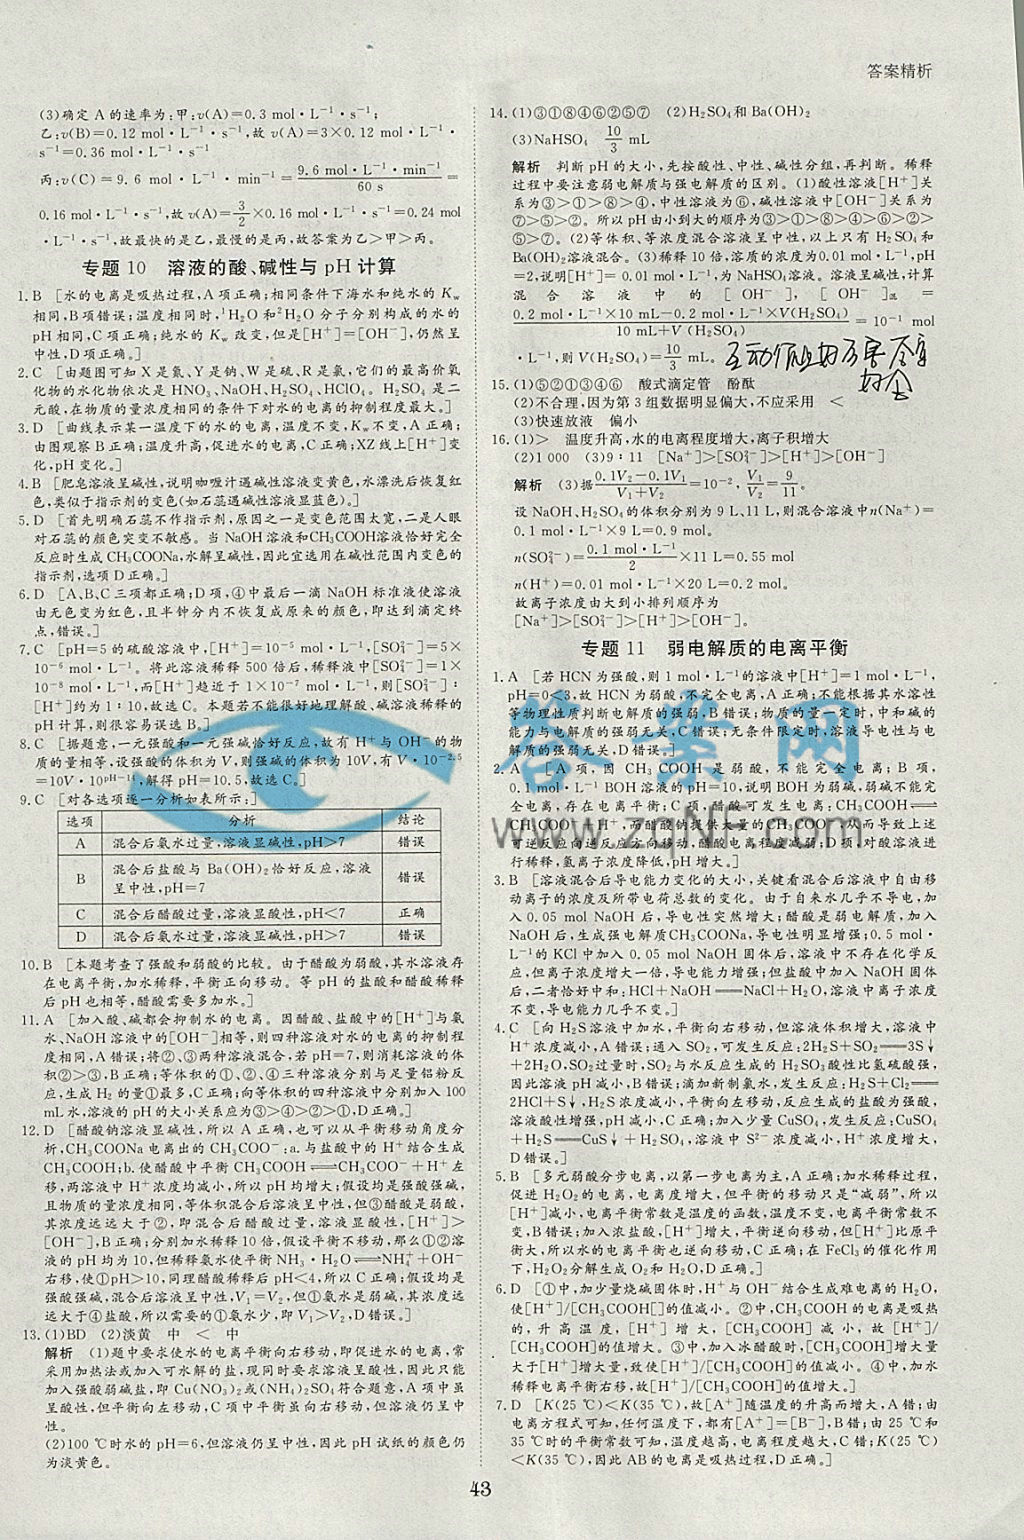 答案精析
(3)确定 A 的速率为:甲:v(A)=0.3 mol·L⁻¹·s⁻¹;
乙:v(B)=0.12 mol·L⁻¹·s⁻¹,故 v(A)=3×0.12 mol·L⁻¹·
s⁻¹=0.36 mol·L⁻¹·s⁻¹
丙:v(C)=9.6 mol·L⁻¹·min⁻¹=9.6 mol·L⁻¹·min⁻¹/60 s=
0.16 mol·L⁻¹·s⁻¹,故 v(A)=3/2×0.16 mol·L⁻¹·s⁻¹=0.24 mol
·L⁻¹·s⁻¹,故最快的是乙,最慢的是丙,故答案为乙>甲>丙。
专题 10 溶液的酸、碱性与 pH 计算
1.B [水的电离是吸热过程,A 项正确;相同条件下海水和纯水的 Kw
相同,B 项错误;温度相同时,¹H₂O 和²H₂O 分子分别构成的水的
pH 相同,C 项正确;纯水的 Kw 改变,但是[H⁺]=[OH⁻],仍然呈
中性,D 项正确。]
2.C [由题图可知 X 是氮、Y 是钠、W 是硫、R 是氯,它们的最高价氧
化物的水化物依次是 HNO₃、NaOH、H₂SO₄、HClO₄。H₂SO₄ 是二
元酸,在物质的量浓度相同的条件下对水的电离的抑制程度最大。]
3.D [曲线表示某一温度下的水的电离,温度不变,Kw 不变,A 正确;
由图观察 B 正确;温度升高,促进水的电离,C 正确;XZ 线上[H⁺]变
化,pH 变化。]
4.B [肥皂溶液呈碱性,说明咖喱汁遇碱性溶液变黄色,水漂洗后恢复红
色,类似于指示剂的变色(如石蕊遇碱性溶液显蓝色)。]
5.D [首先明确石蕊不作指示剂,原因之一是变色范围太宽,二是人眼
对石蕊的颜色突变不敏感。当 NaOH 溶液和 CH₃COOH溶液恰好完全
反应时生成 CH₃COONa,水解呈碱性,因此宜选用在碱性范围内变色的
指示剂,选项 D 正确。]
6.D [A、B、C 三项都正确;D 项,④中最后一滴 NaOH 标准液使溶液
由无色变为红色,且半钟分内不恢复成原来的颜色,即达到滴定终
点,错误。]
7.C [pH=5 的硫酸溶液中,[H⁺]=10⁻⁵ mol·L⁻¹,[SO₄²⁻]=5×
10⁻⁶ mol·L⁻¹。将此溶液稀释 500 倍后,稀释液中[SO₄²⁻]=1×
10⁻⁸ mol·L⁻¹,而[H⁺]趋近于 1×10⁻⁷ mol·L⁻¹,则[SO₄²⁻]:
[H⁺]约为 1∶10,故选 C。本题若不能很好地理解酸、碱溶液稀释的
pH 计算,则很容易误选 B。]
8.C [据题意,一元强酸和一元强碱恰好反应,故有 H⁺与 OH⁻的物
质的量相等,设强酸的体积为 V,则强碱的体积为 10V,有 V·10⁻²·⁵
=10V·10ᵖᴴ⁻¹⁴,解得 pH=10.5,故选 C。]
9.C [对各选项逐一分析如表所示:]
选项 分析 结论
A 混合后氨水过量,溶液显碱性,pH>7 错误
B 混合后盐酸与 Ba(OH)₂恰好反应,溶液呈中性,pH=7 错误
C 混合后醋酸过量,溶液显酸性,pH<7 正确
D 混合后氨水过量,溶液显碱性,pH>7 错误
10.B [本题考查了强酸和弱酸的比较。由于醋酸为弱酸,其水溶液存
在电离平衡,加水稀释,平衡正向移动。等 pH 的盐酸和醋酸稀释
后 pH 也相等,醋酸需要多加水。]
11.A [加入酸、碱都会抑制水的电离。因醋酸、盐酸中的[H⁺]与氨
水、NaOH 溶液中的[OH⁻]相等,则四种溶液对水的电离的抑制程
度相同,A 错误;将②、③两种溶液混合,若 pH=7,则消耗溶液的体
积②>③,B 正确;等体积的①、②、④三种溶液分别与足量铝粉反
应,生成 H₂ 的量①最多,C 正确;向等体积的四种溶液中分别加入 100
mL 水,溶液的 pH 的大小关系应为③>④>②>①,D 正确。]
12.D [醋酸钠溶液显碱性,所以 A 正确,也可以从平衡移动角度分
析,CH₃COONa 电离出的 CH₃COO⁻:a.与盐酸中的 H⁺结合生成
CH₃COOH;b.使醋酸中平衡 CH₃COOH⇌CH₃COO⁻+H⁺左
移,两溶液中 H⁺浓度均减小,所以 pH 均增大;假设均是强酸强碱,
且物质的量浓度相同,等体积混合后溶液呈中性,但③醋酸是弱酸,
其浓度远远大于②,即混合后醋酸过量,溶液显酸性,[H⁺]>
[OH⁻],B 正确;分别加水稀释 10 倍,假设平衡不移动,那么①②溶
液的 pH 均为 10,但稀释氨水使平衡 NH₃·H₂O⇌NH₄⁺+OH⁻
右移,使①pH>10,同理醋酸稀释后 pH<4,所以 C 正确;假设均是
强酸强碱,混合后溶液呈中性,V₁=V₂,但①氨水是弱碱,其浓度远
远大于④盐酸,所以需要的①氨水少,即 V₁>V₂,D 错误。]
13.(1)BD (2)淡黄 中 < 中
解析 (1)题中要求使水的电离平衡向右移动,即促进水的电离,常
采用加热法或加入可水解的盐,现同时要求溶液呈酸性,因此只能
加入强酸弱碱盐,即 Cu(NO₃)₂或(NH₄)₂SO₄符合题意,A 项中虽
呈酸性,但平衡向左移动,C 项中平衡虽向右移动,但溶液仍呈中
性。
(2)100 ℃时水的 pH=6,但溶液仍呈中性,因此 pH 试纸的颜色仍
为淡黄色。
14.(1)③①⑧④⑥②⑤⑦ (2)H₂SO₄和 Ba(OH)₂
(3)NaHSO₄ 10/3 mL
解析 判断 pH 的大小,先按酸性、中性、碱性分组,再判断。稀释
过程中要注意弱电解质与强电解质的区别。(1)酸性溶液[H⁺]关
系为③>①>⑧>④,中性溶液为⑥,碱性溶液中[OH⁻]关系为
⑦>⑤>②。所以 pH 由小到大的顺序为③>①>⑧>④>⑥>②>
⑤>⑦。(2)等体积、等浓度混合溶液呈中性,以上只有 H₂SO₄和
Ba(OH)₂溶液混合。(3)稀释 10 倍,溶质的浓度为0.01 mol·L⁻¹,pH
=2,说明[H⁺]= 0.01 mol·L⁻¹,为 NaHSO₄溶液。溶液呈碱性,计算
混合溶液中的[OH⁻],[OH⁻]混=
0.2 mol·L⁻¹×10 mL-0.2 mol·L⁻¹×V(H₂SO₄)/10 mL+V(H₂SO₄)=10⁻¹ mol
·L⁻¹,则 V(H₂SO₄)=10/3 mL。
15.(1)⑤②①③④⑥ 酸式滴定管 酚酞
(2)不合理,因为第 3 组数据明显偏大,不应采用 <
(3)快速放液 偏小
16.(1)> 温度升高,水的电离程度增大,离子积增大
(2)1 000 (3)9∶11 [Na⁺]>[SO₄²⁻]>[H⁺]>[OH⁻]
解析 (3)据0.1V₂-0.1V₁/V₁+V₂=10⁻²,V₁/V₂=9/11。
设 NaOH、H₂SO₄的体积分别为 9 L、11 L,则混合溶液中 n(Na⁺)=
0.1 mol·L⁻¹×9 L=0.9 mol。
n(SO₄²⁻)=0.1 mol·L⁻¹/2×11 L=0.55 mol
n(H⁺)=0.01 mol·L⁻¹×20 L=0.2 mol。
故离子浓度由大到小排列顺序为
[Na⁺]>[SO₄²⁻]>[H⁺]>[OH⁻]。
专题 11 弱电解质的电离平衡
1.A [若 HCN 为强酸,则 1 mol·L⁻¹的溶液中[H⁺]=1 mol·L⁻¹,
pH=0<3,故 HCN 为弱酸,不完全电离,A 正确;不能根据其水溶性
等物理性质判断电解质的强弱,B 错误;物质的量一定时,中和碱的
能力与电解质的强弱无关,C 错误;无条件限定时,溶液导电性与电
解质的强弱无关,D 错误。]
2.A [A 项,因 CH₃COOH 是弱酸,不能完全电离;B 项,
0.1 mol·L⁻¹ BOH 溶液的 pH=10,说明 BOH 为弱碱,弱碱不能完
全电离,存在电离平衡;C 项,醋酸可发生电离:CH₃COOH⇌
CH₃COO⁻+H⁺,而醋酸钠提供大量的 CH₃COO⁻,从而导致上述
平衡逆反应向逆反应方向移动,醋酸电离程度减弱;D 项,对酸溶液进
行稀释,氢离子浓度降低,pH 增大。]
3.B [溶液混合后导电能力变化的大小,关键看混合后溶液中自由移
动离子的浓度和所带电荷总数的变化。由于自来水几乎不导电,加
入 0.05 mol NaOH 后,导电性突然增大;醋酸是弱电解质,加入
NaOH 后,生成强电解质CH₃COONa,导电性明显增强;0.5 mol·
L⁻¹的 KCl 中加入 0.05 mol NaOH 固体后,溶液中不存在化学反
应,但离子浓度增大一倍,导电能力增强;但盐酸中加入 NaOH 固体
后,二者恰好中和:HCl+NaOH══NaCl+H₂O,溶液中离子浓度
不变,导电能力几乎不变。]
4.C [向 H₂S溶液中加水,平衡向右移动,但溶液体积增大,溶液中
H⁺浓度减小,A 错误;通入 SO₂,可发生反应:2H₂S+SO₂══3S↓
+2H₂O,SO₂过量时,SO₂与水反应生成的 H₂SO₃酸性比氢硫酸强,
因此溶液 pH 减小,B 错误;滴加新制氯水,发生反应:H₂S+Cl₂══
2HCl+S↓,H₂S浓度减小,平衡向左移动,反应生成的盐酸为强酸,
溶液酸性增强,pH 减小,C 正确;加入少量 CuSO₄,发生反应:CuSO₄
+H₂S══CuS↓+H₂SO₄,溶液中 S²⁻浓度减小,H⁺浓度增大,
D 错误。]
5.B [多元弱酸分步电离,以第一步电离为主,A 正确;加水稀释过程,
促进 H₂O₂的电离,电离度增大,但平衡的移动只是“减弱”,所以
[H⁺]减小,电离平衡常数是温度的函数,温度不变,电离平衡常数不
变,B 错误;加入浓盐酸,[H⁺]增大,平衡逆向移动,但[H⁺]比原平
衡大,所以水的电离平衡也逆向移动,C 正确;在 FeCl₃的催化作用
下,H₂O₂分解生成 O₂和 H₂O,D正确。]
6.D [①中,加少量烧碱固体时,H⁺与 OH⁻结合生成难电离的 H₂O,
使[H⁺]/[CH₃COOH]]的值减小。②中,CH₃COOH 的电离是吸热
的,升高温度,[H⁺]增大,[CH₃COOH]减小,故[H⁺]/
[CH₃COOH]的值增大。③中,加入冰醋酸时,[CH₃COOH]增大量
大于[H⁺]增大量,致使[H⁺]/[CH₃COOH]的值减小。④中,加水
稀释电离平衡右移,故[H⁺]/[CH₃COOH]的值增大。]
7.D [K(25 ℃)<K(35 ℃),故[A⁺]随温度的升高而增大,A 错;由
电离方程式可知,任何温度下,都有[A⁺]=[B⁻],B 错;由 25 ℃和
35 ℃时的平衡常数可知,温度越高,电离程度越大,C 错;K(25 ℃)
<K(35 ℃),因此 AB 的电离是吸热过程,D 正确。]
答案网
www.zqNF.com
43